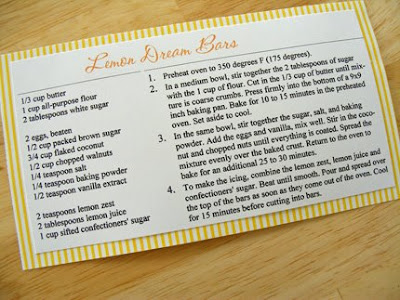 Lemon Dream Bars
1/3 cup butter
1 cup all-purpose flour
2 tablespoons white sugar
2 eggs, beaten
1/2 cup packed brown sugar
3/4 cup flaked coconut
1/2 cup chopped walnuts
1/4 teaspoon salt
1/4 teaspoon baking powder
1/2 teaspoon vanilla extract
2 teaspoons lemon zest
2 tablespoons lemon juice
1 cup sifted confectioners' sugar
1. Preheat oven to 350 degrees F (175 degrees).
2. In a medium bowl, stir together the 2 tablespoons of sugar
with the 1 cup of flour. Cut in the 1/3 cup of butter until mix-
ture is coarse crumbs. Press firmly into the bottom of a 9x9
inch baking pan. Bake for 10 to 15 minutes in the preheated
oven. Set aside to cool.
3. In the same bowl, stir together the sugar, salt, and baking
powder. Add the eggs and vanilla, mix well. Stir in the coco-
nut and chopped nuts until everything is coated. Spread the
mixture evenly over the baked crust. Return to the oven to
bake for an additional 25 to 30 minutes.
4. To make the icing, combine the lemon zest, lemon juice and
confectioners' sugar. Beat until smooth. Pour and spread over
the top of the bars as soon as they come out of the oven. Cool
for 15 minutes before cutting into bars.